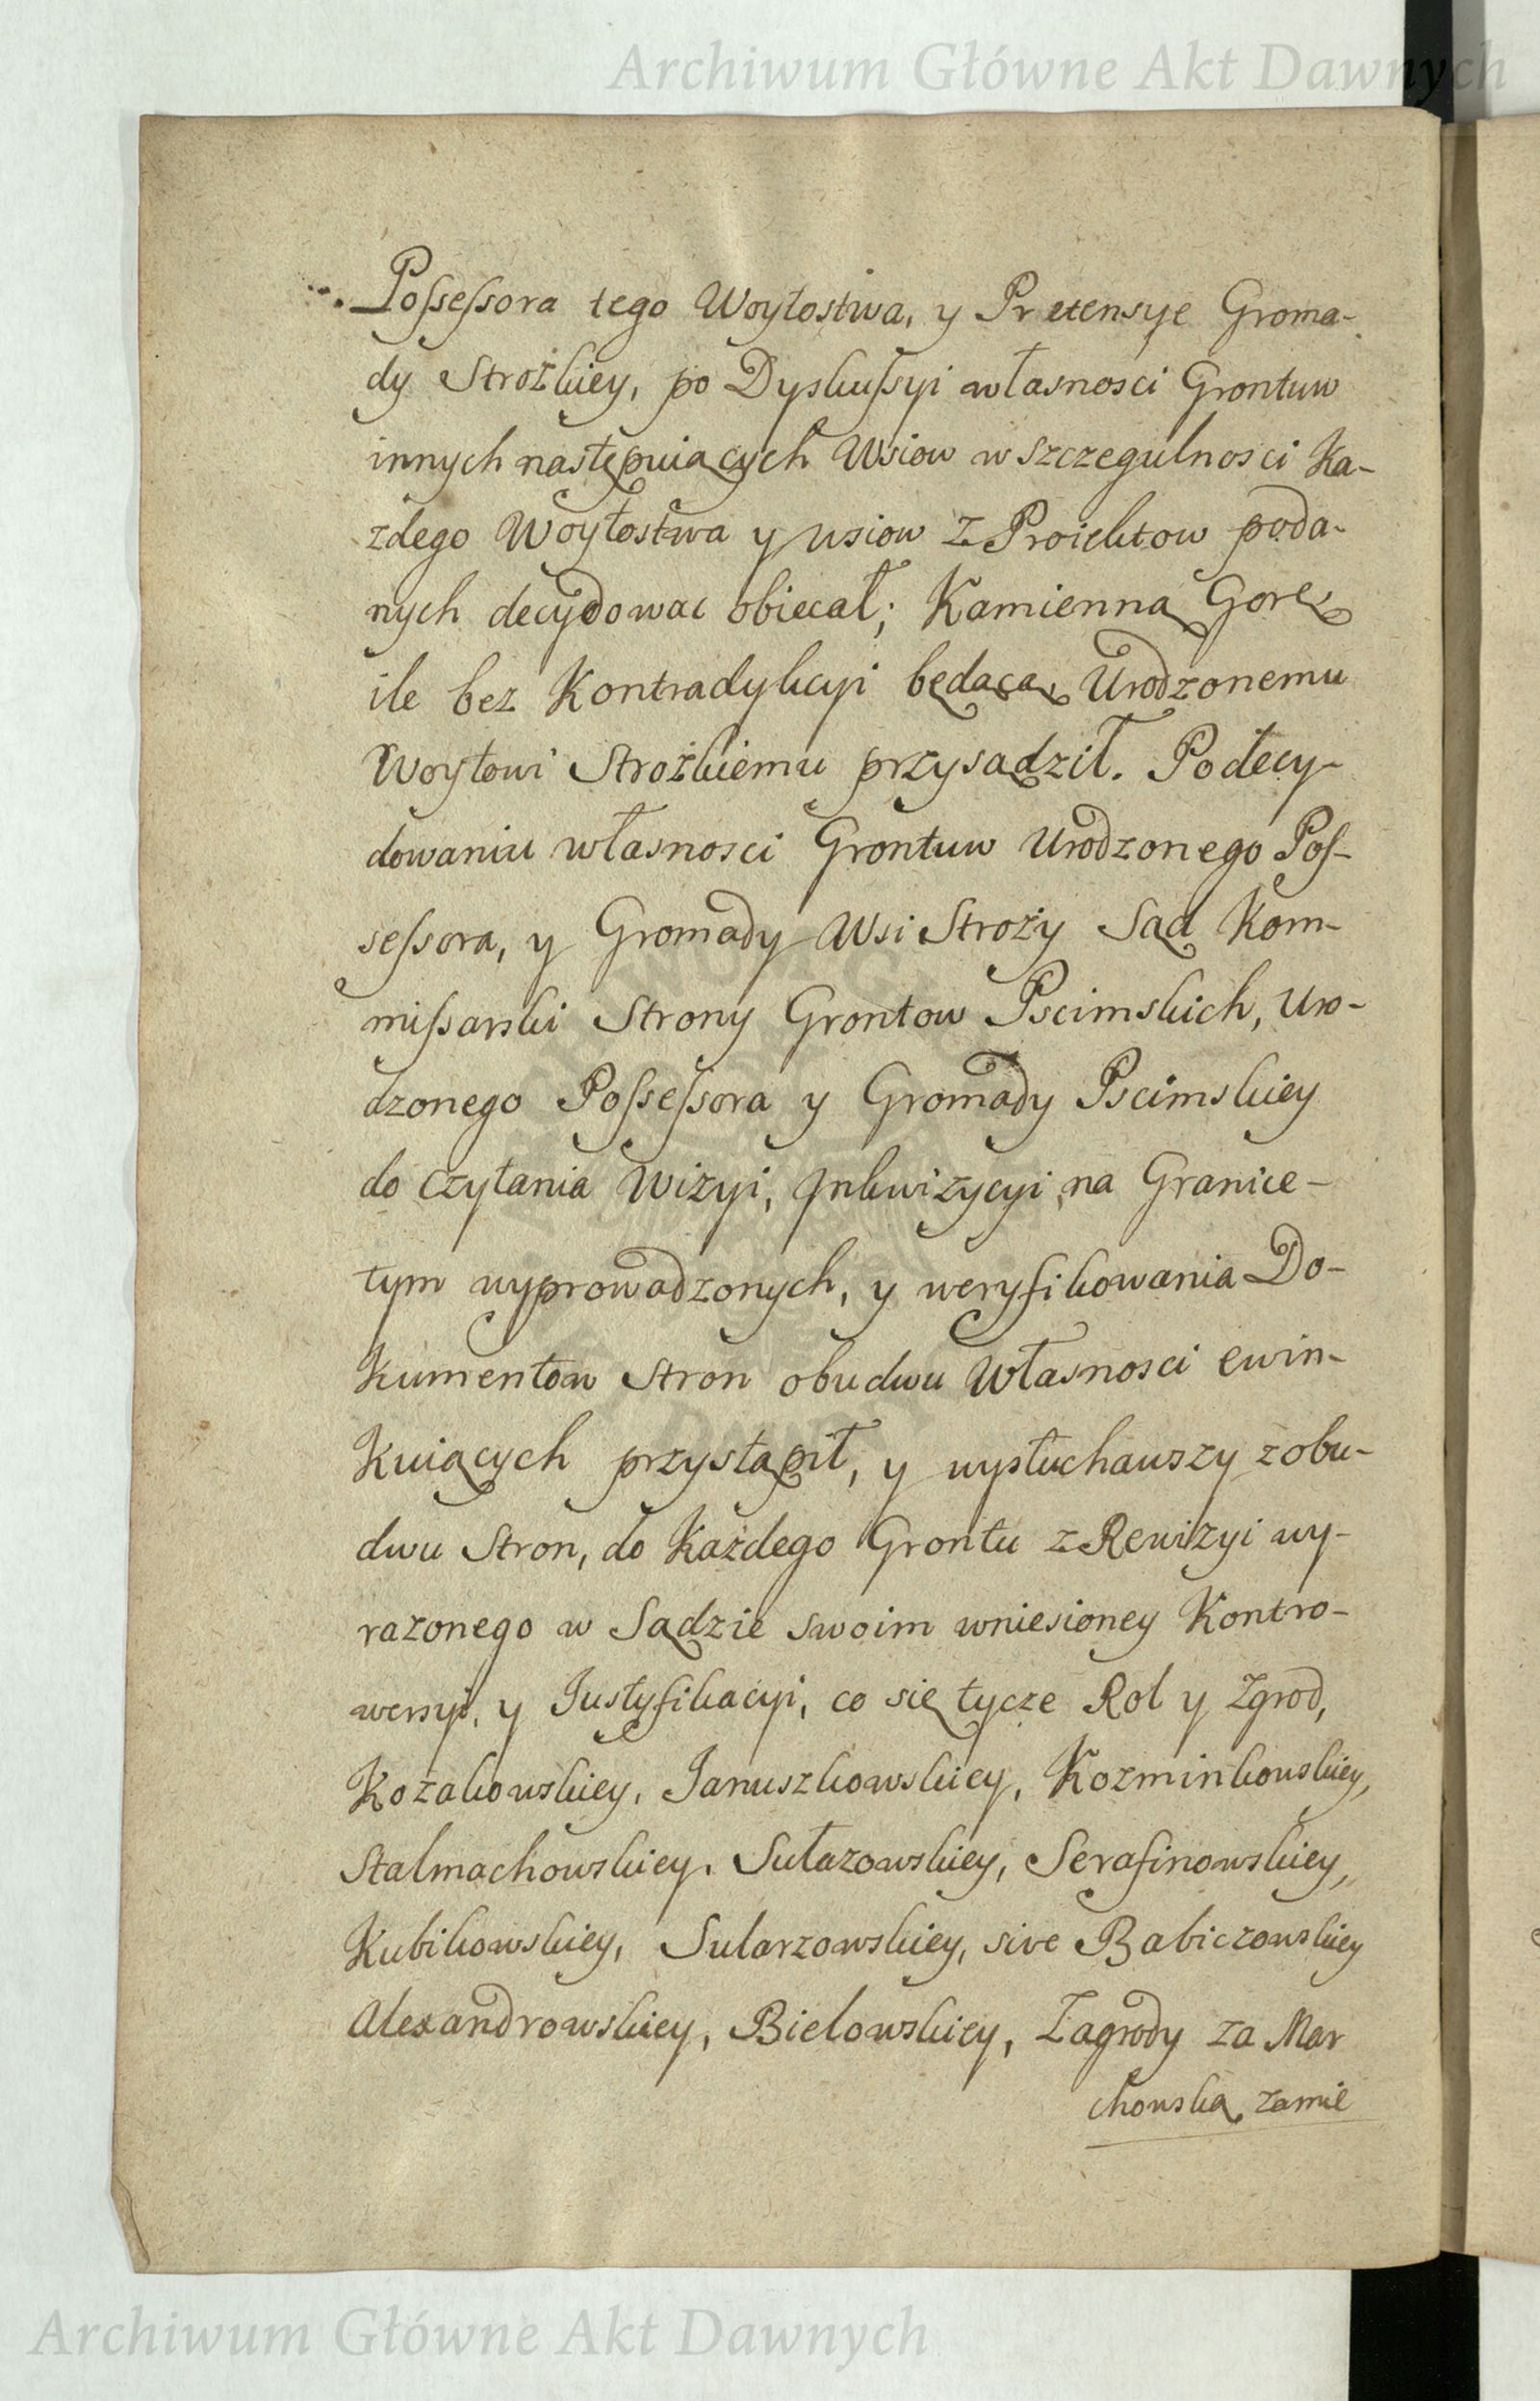 Archiwum Główne Akt Dawnych
Possessora tego Woytostwa, y Pretensye Groma-
dy Strożkiey, po Dyskussyi własnosci Grontuw
innych następuiących Wsiow w szczegulnosci Ka-
zdego Woytostwa y wsiow z Proiektow poda-
nych decydowac obiecał; Kamienną Gorę
ile bez Kontradykcyi będącą, Urodzonemu
Woytowi Strożkiemu przysądził. Po decy-
dowaniu własnosci Grontuw Urodzonego Pos-
sessora, y Gromady Wsi Stroży Sąd Kom-
missarski Strony Grontow Pscimskich, Uro-
dzonego Possessora y Gromady Pscimskiey
do czytania Wizyi, Jnkwizycyi, na Grance-
tym wyprowadzonych, y weryfikowania Do-
kumentow Stron obudwu Własnosci ewin-
kuiących przystąpił, y wysłuchawszy z obu-
dwu Stron, do Każdego Grontu z Rewizyi wy-
razonego w Sądzie swoim wniesioney Kontro-
wersyi, y Justyfikacyi, co się tycze Rol y Zgrod,
Kozakowskiey, Januszkowskiey, Kozminkowskiey,
Stalmachowskiey, Sułazowskiey, Serafinowskiey,
Kubikowskiey, Sularzowskiey, sive Babiczowskiey
Alexandrowskiey, Bielowskiey, Zagrody za Mar
chowską, zamie
Archiwum Główne Akt Dawnych